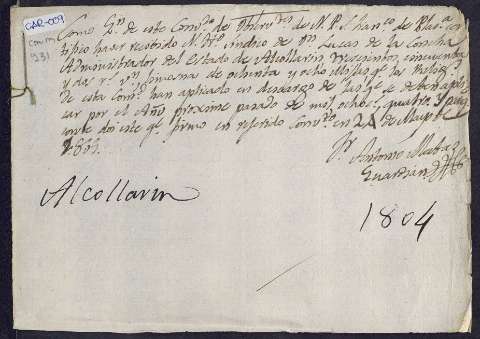 CAR-009
931
Como Gn. de este Convto. de Observtes. de N. P. S. Franco. de
haver recivido N. Hno. sindico de Dn. Lucas de la Concha
Administrador del Estado de Alcollarin trescientos, cincuenta
y dos rs. vn. limosna de ochenta y ocho Misas qe. los Relixs.
de esta Comd. han aplicado en descargo de las qe. se deben apli
car por el Año proxime pasado de mil ochocs. quatro, y pa. qe.
conste doi este qe. firmo en referido Convto. en de Mayo de
Fr. Antonio
Guardian
Alcollarin
1804